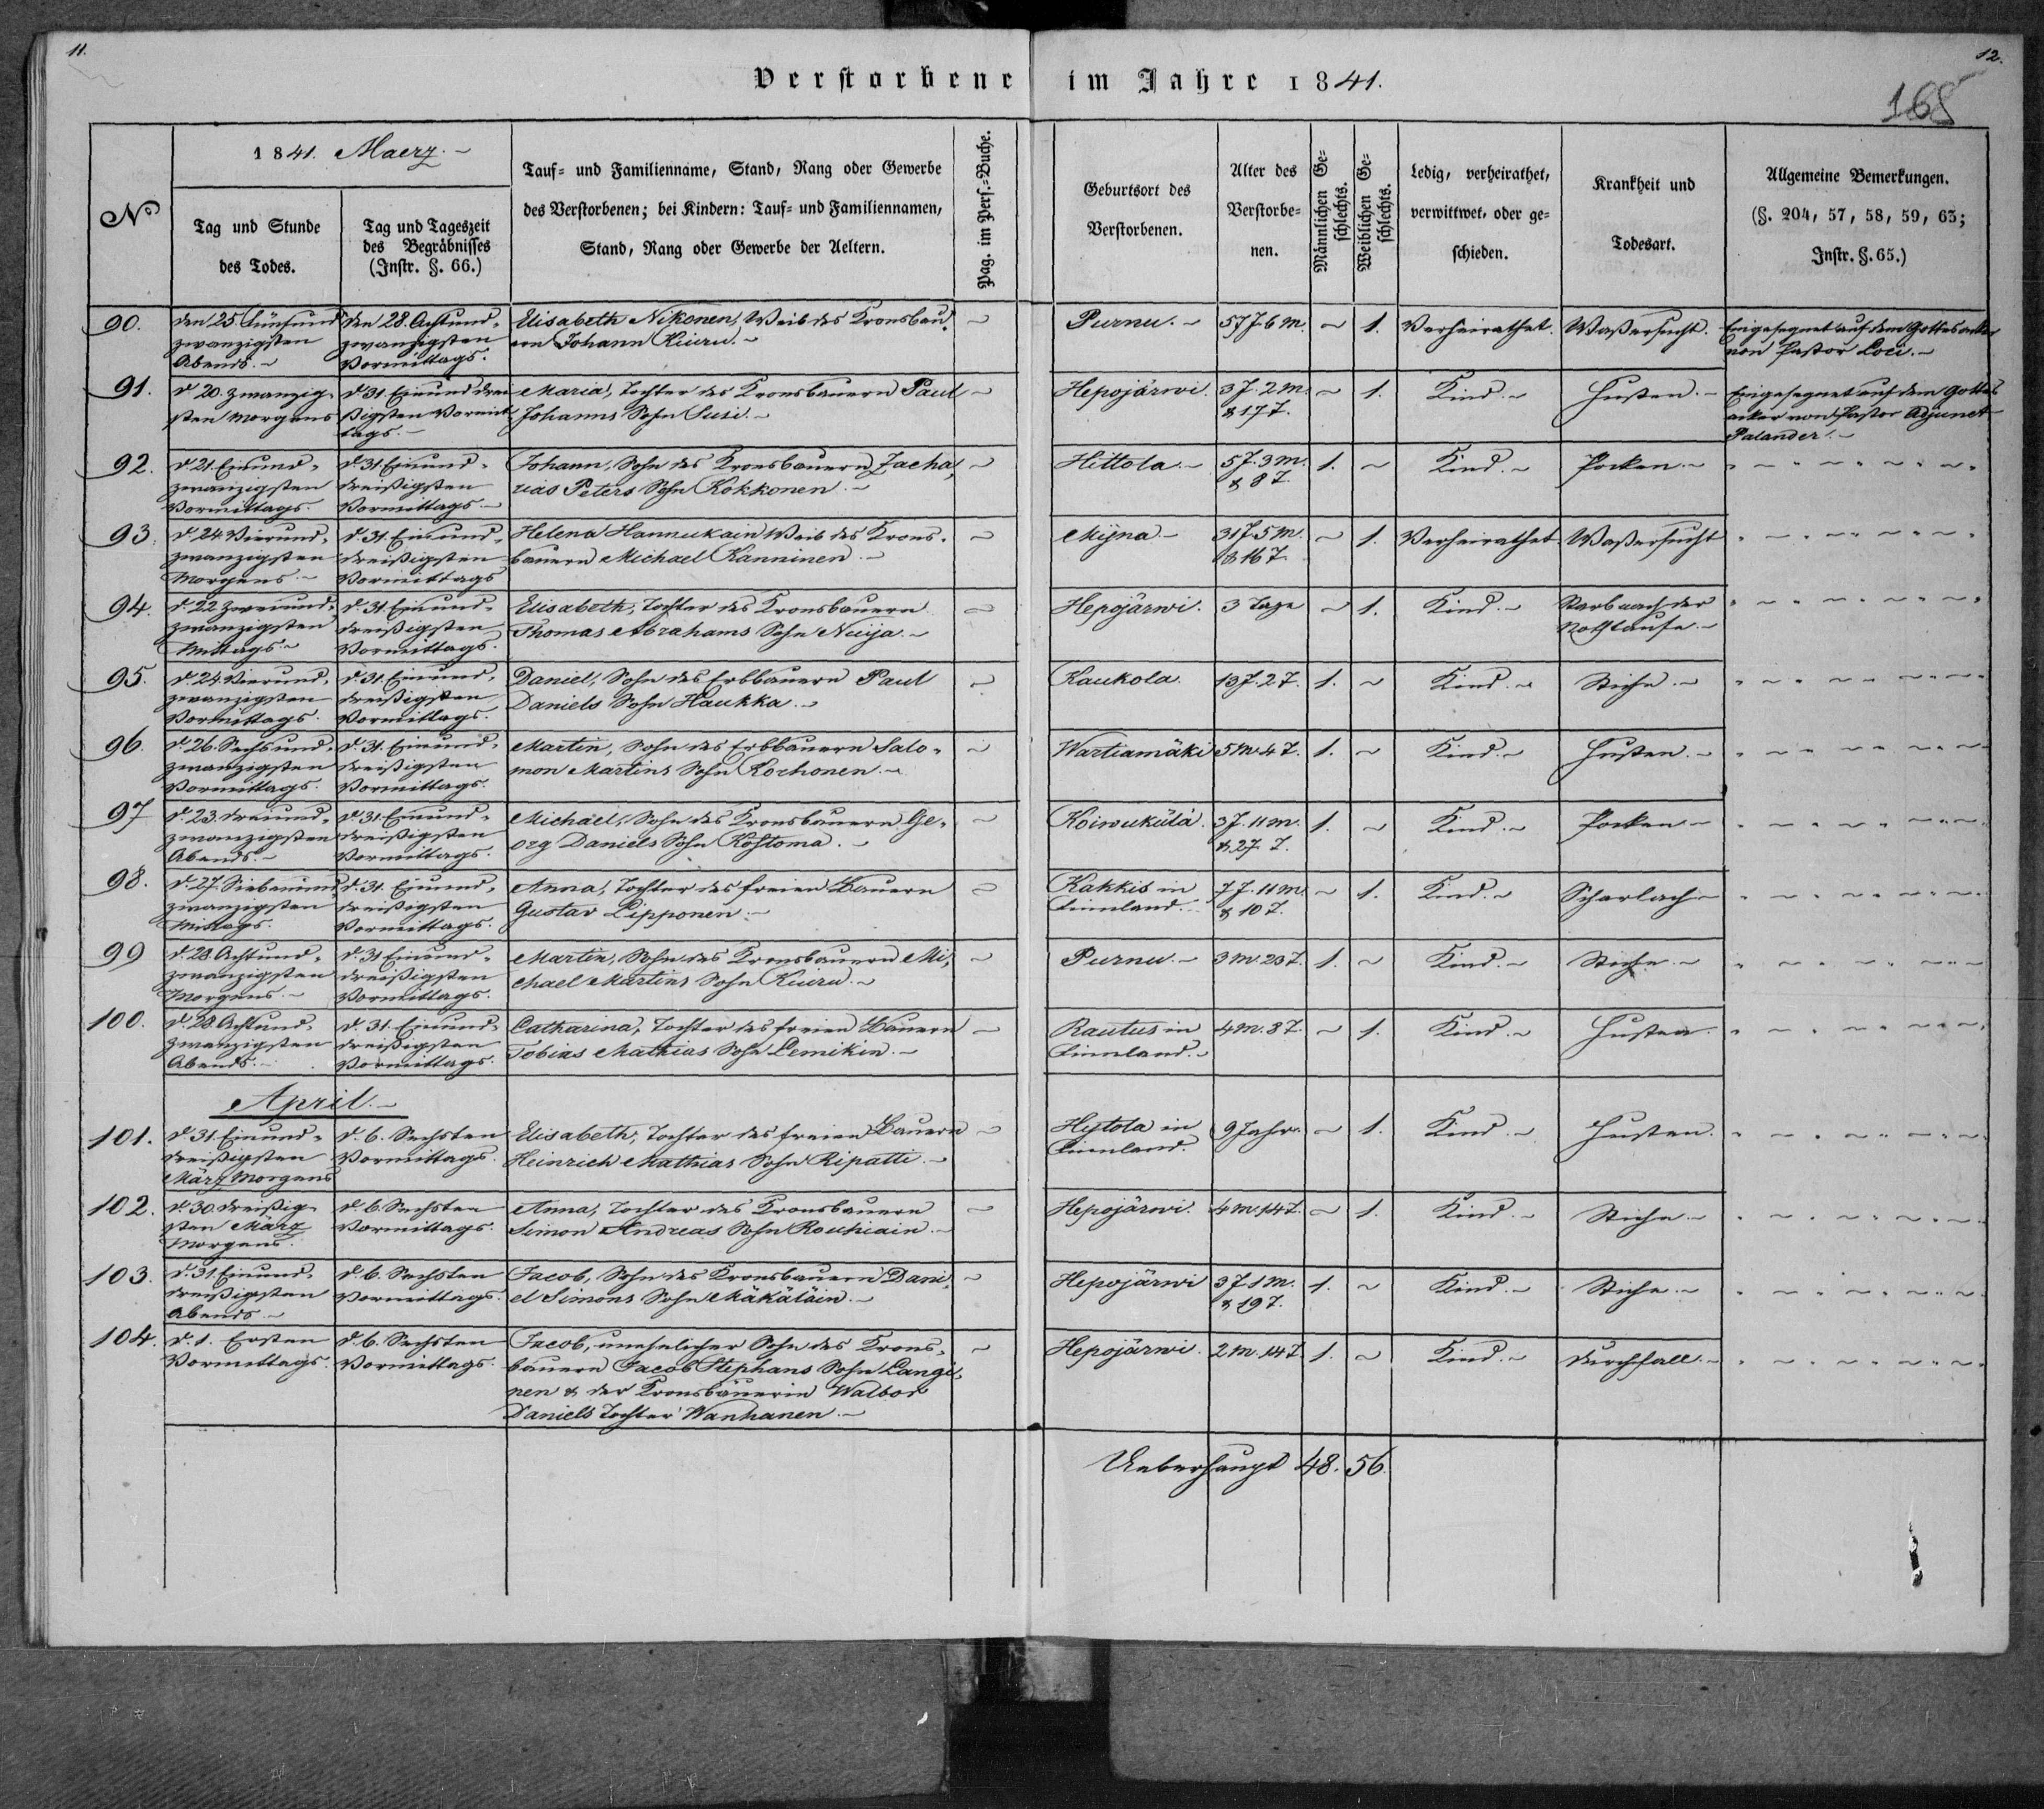 11.
12.
Verstorbene im Jahre 1841.
168
No
1841. Maerz.
Tag und Stunde
des Todes.
Tag und Tageszeit
des Begräbnisses
(Instr. §. 66.)
Tauf- und Familienname, Stand, Rang oder Gewerbe
des Verstorbenen; bei Kindern: Tauf- und Familiennamen,
Stand, Rang oder Gewerbe der Aeltern.
Pag. im Pers.-Buche.
Geburtsort des
Verstorbenen.
Alter des
Verstorbe-
nen.
Männlichen Ge-
schlechts.
Weiblichen Ge-
schlechts.
Ledig, verheirathet,
verwittwet, oder ge-
schieden.
Krankheit und
Todesart.
Allgemeine Bemerkungen.
(§. 204, 57, 58, 59, 63;
Instr. §. 65.)
90. den 25. Fünfund den 28. Achtund- Elisabeth Nikonen, Weib des Kronsbau- ~ Purnu. ~ 57 J. 6 M. ~ 1. Verheirathet. Waßersucht. Eingesegnet auf dem Gottesacker
zwanzigsten zwanzigsten ern Johann Kiuru. ~ von Pastor Loci. ~
Abends. ~ Vormittags.
91. d. 20. zwanzig- d. 31. Einund drei Maria, Tochter des Kronsbauern Paul ~ Hepojärwi. 3 J. 2 M. ~ 1. Kind. ~ Husten. ~ Eingesegnet auf dem Gottes
sten Morgens ßigsten Vormit- Johanns Sohn Susi. ~ & 17 T. acker von Pastor Adjunct
tags. ~ Palander. ~
92. d. 21. Einund- d. 31. Einund- Johann, Sohn des Kronsbauern Zacha- ~ Hittola. ~ 5 J. 3 M. 1. ~ Kind. ~ Pocken. ~
zwanzigsten dreißigsten rias Peters Sohn Kokkonen. ~ & 8 T.
Vormittags. Vormittags. ~
93. d. 24. Vierund- d. 31. Einund- Helena Hannukain Weib des Krons- ~ Mijna. ~ 31 J. 5 M. ~ 1. Verheirathet. Waßersucht
zwanzigsten dreißigsten bauern Michael Kanninen. ~ & 16 T.
Morgens. ~ Vormittags
94. d. 22. Zweiund- d. 31. Einund- Elisabeth, Tochter des Kronsbauern ~ Hepojärwi. 3 Tage ~ 1. Kind. ~ Starb nach der
zwanzigsten dreißigsten Thomas Abrahams Sohn Nuija. ~ Nothtaufe. ~
Mittags. ~ Vormittags.
95. d. 24. Vierund- d. 31. Einund- Daniel, Sohn des Erbbauern Paul ~ Kaukola. 13 J. 2 T. 1. ~ Kind. ~ Stiche. ~
zwanzigsten dreißigsten Daniels Sohn Haukka. ~
Vormittags. Vormittags.
96. d. 26. Sechsund- d. 31. Einund- Martin, Sohn des Erbbauern Salo- ~ Wartiamäki 5 M. 4 T. 1. ~ Kind. ~ Husten. ~
zwanzigsten dreißigsten mon Martins Sohn Korhonen. ~
Vormittags. Vormittags.
97 d. 23. Dreiund- d. 31. Einund- Michael, Sohn des Kronsbauern Ge- ~ Koiwukülä. 3 J. 11 M. 1. ~ Kind. ~ Pocken ~
zwanzigsten dreißigsten org Daniels Sohn Kostoma. ~ & 27 T.
Abends. ~ Vormittags.
98. d. 27. Siebenund d. 31. Einund- Anna, Tochter des freien Bauern ~ Kakkis in 7 J. 11 M. ~ 1. Kind. ~ Scharlach ~
zwanzigsten dreißigsten Gustav Lipponen. ~ Finnland. ~ & 10 T.
Mittags. Vormittags.
99 d. 28. Achtund- d. 31. Einund- Martin, Sohn des Kronsbauern Mi- ~ Purnu. ~ 3 M. 23 T. 1. ~ Kind. ~ Stiche. ~
zwanzigsten dreißigsten chael Martins Sohn Kiuru. ~
Morgens. ~ Vormittags.
100. d. 28. Achtund- d. 31. Einund- Catharina, Tochter des freien Bauern ~ Rautus in 4 M. 3 T. ~ 1. Kind. ~ Husten.
zwanzigsten dreißigsten Tobias Mathias Sohn Lemikin. ~ Finnland. ~
Abends. ~ Vormittags.
April. ~
101. d. 31. Einund- d. 6. Sechsten Elisabeth, Tochter des freien Bauern ~ Hytola in 9 Jahr. ~ 1. Kind. ~ Husten.
dreißigsten Vormittags. Heinrich Mathias Sohn Ripatti. ~ Finnland.
März Morgens
102. d. 30. Dreißig- d. 6. Sechsten Anna, Tochter des Kronsbauern ~ Hepojärwi. 4 M. 14 T. ~ 1. Kind. ~ Stiche. ~
sten März Vormittags. Simon Andreas Sohn Rouhiain. ~
Morgens.
103. d. 31. Einund- d. 6. Sechsten Jacob, Sohn des Kronsbauern Dani- ~ Hepojärwi 3 J. 1 M. 1. ~ Kind. ~ Stiche. ~
dreißigsten Vormittags. el Simons Sohn Mäkäläin. ~ & 19 T.
Abends. ~
104. d. 1. Ersten d. 6. Sechsten Jacob, unehelicher Sohn des Krons- ~ Hepojärwi. 2 M. 14 T. 1. ~ Kind. ~ Durchfall. ~
Vormittags. Vormittags. bauern Jacob Stephans Sohn Langi-
nen & der Kronsbäuerin Walbor
Daniels Tochter Wanhanen. ~
Ueberhaupt 48. 56.